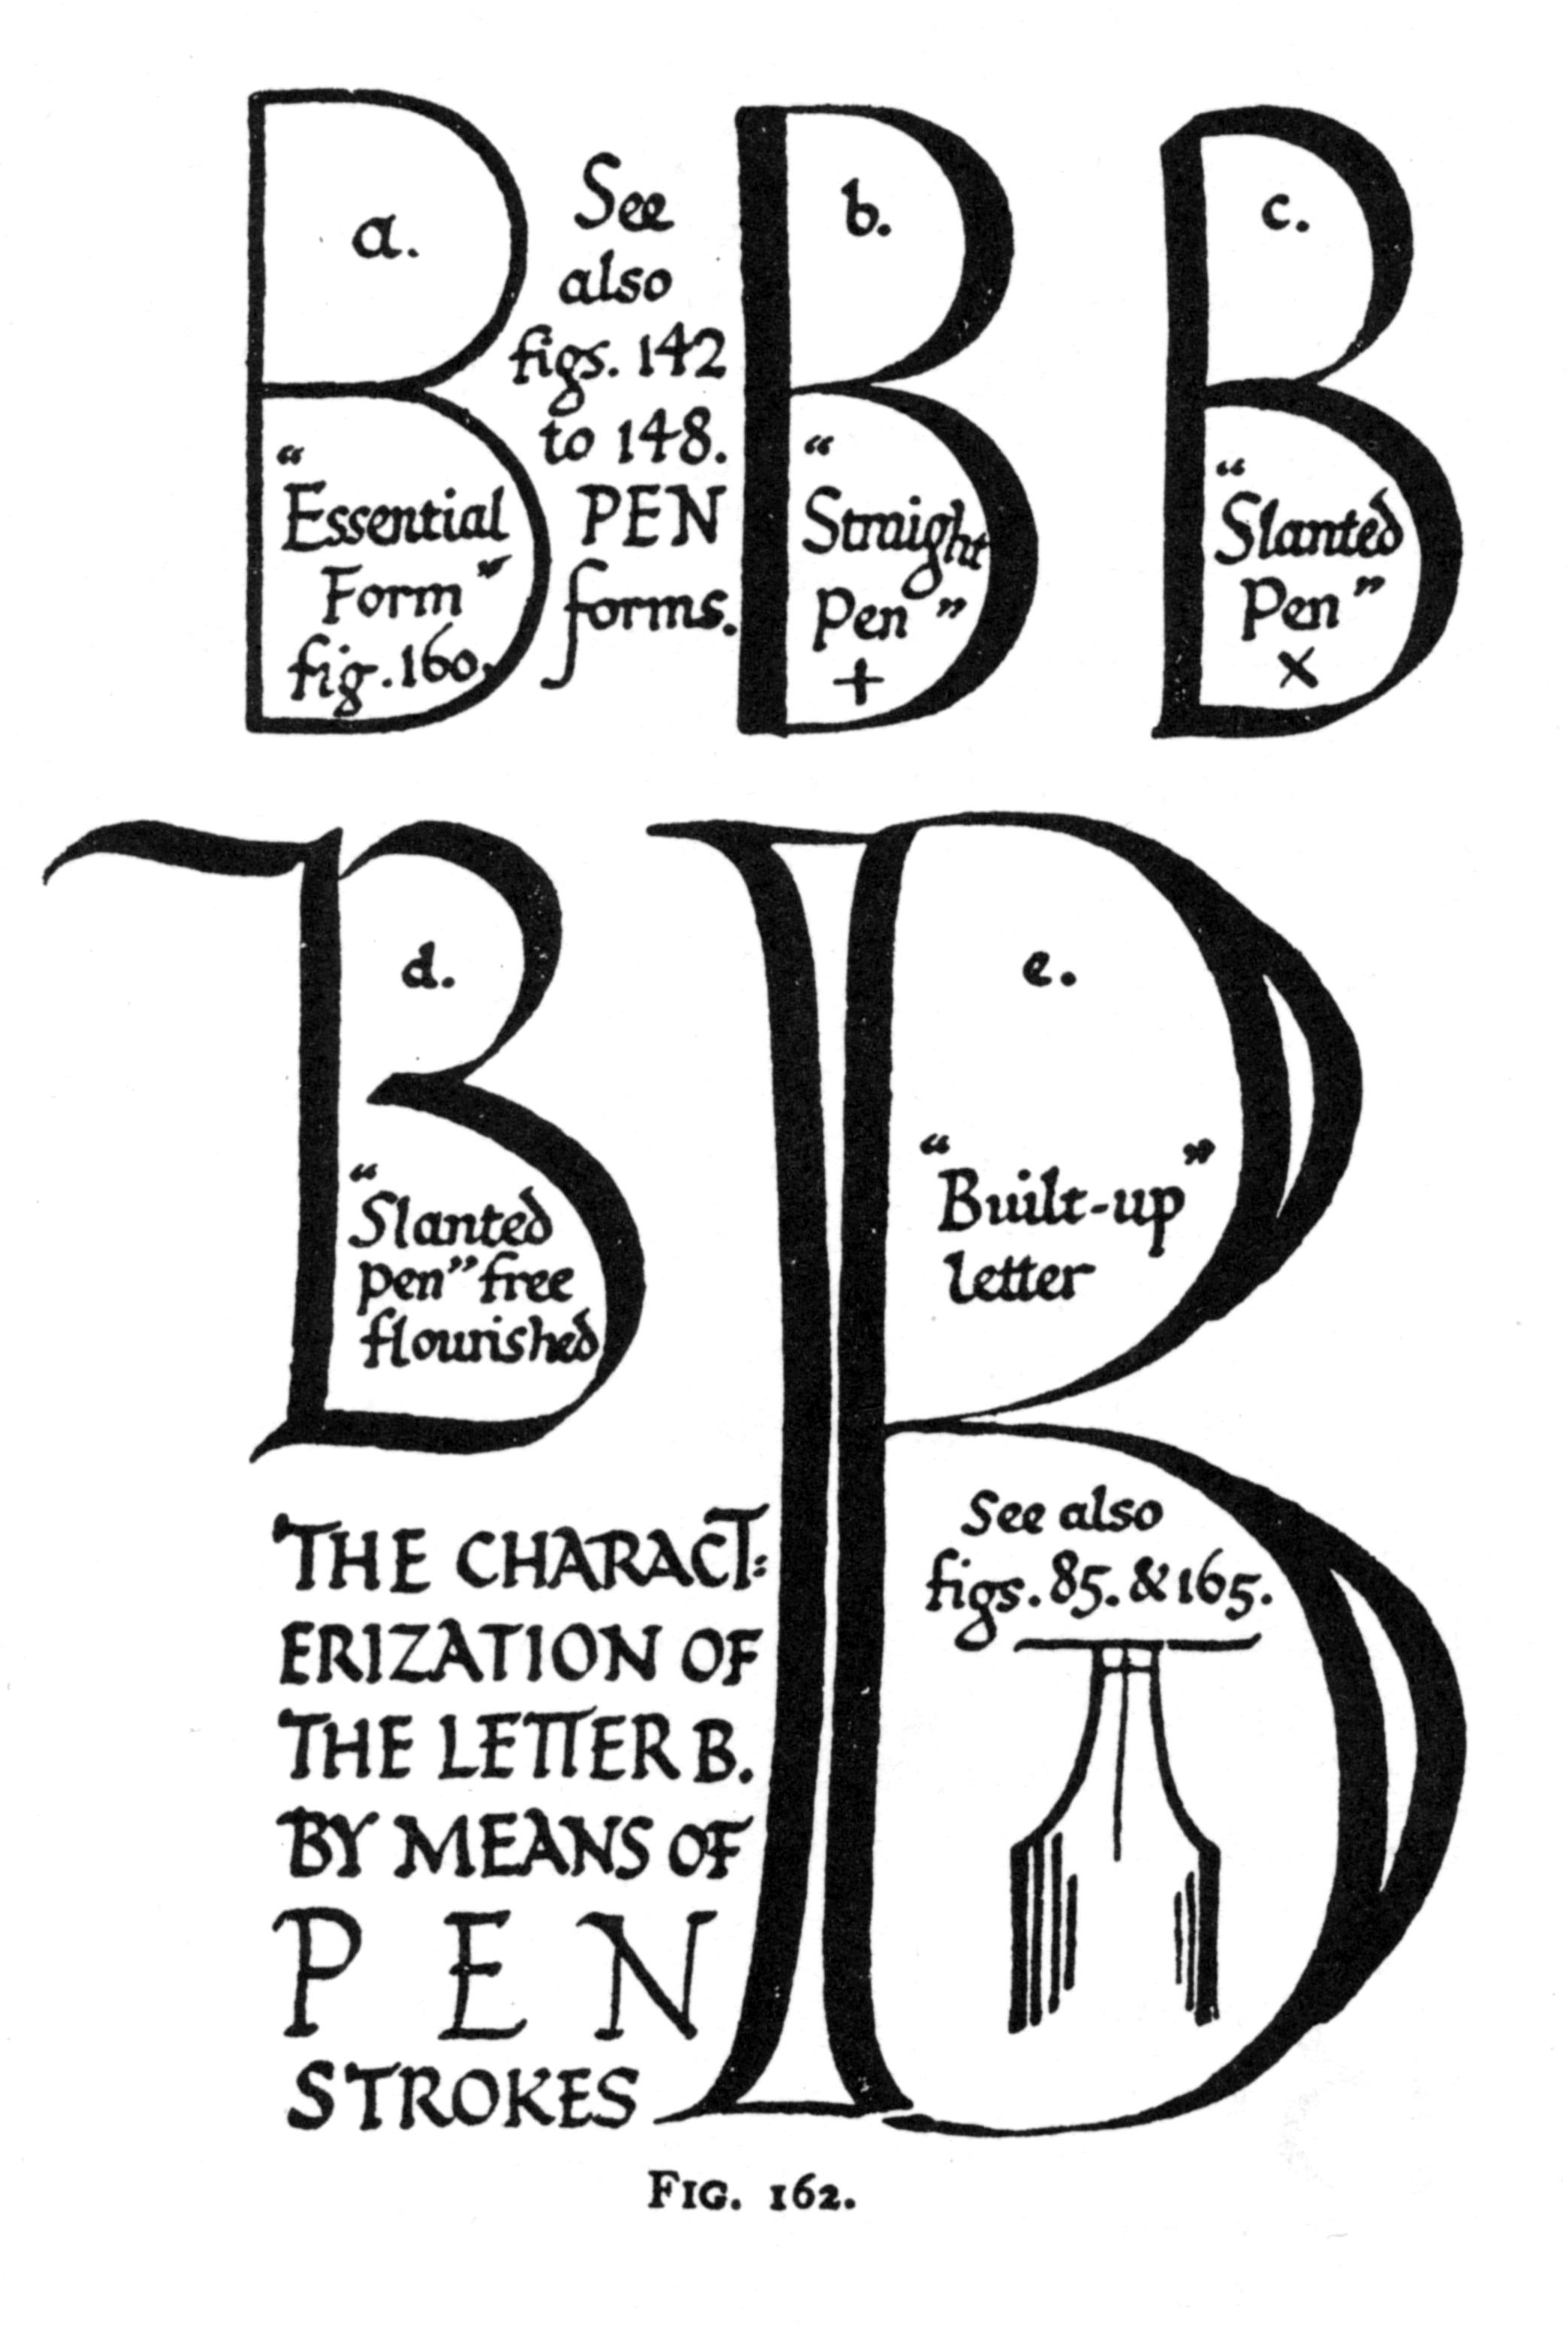 a.
“
Essential
Form”
fig. 160.
See
also
figs. 142
to 148.
PEN
forms.
b.
“
Straight
Pen”
+
c.
“
Slanted
Pen”
×
d.
“
Slanted
pen” free
flourished
e.
“ ”
Built-up
letter
See also
figs. 85. & 165.
THE CHARACT:
ERIZATION OF
THE LETTER B.
BY MEANS OF
PEN
STROKES
FIG. 162.